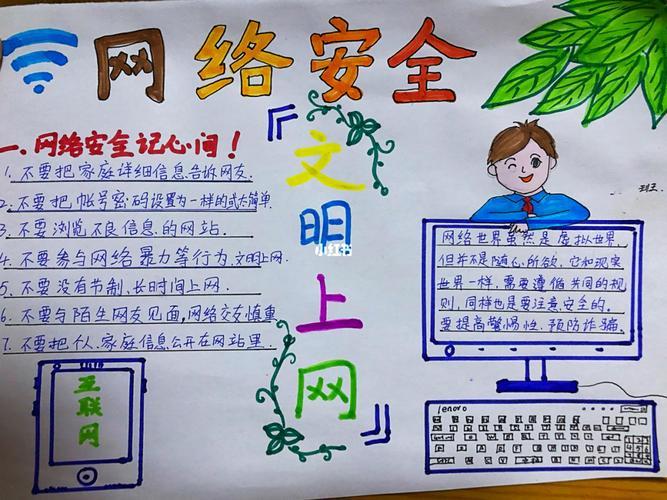 网络安全
一.网络安全记心间！
1.不要把家庭详细信息告诉网友.
2.不要把帐号密码设置为一样的或太简单.
3.不要浏览不良信息的网站.
4.不要参与网络暴力等行为,文明上网.
5.不要没有节制、长时间上网.
6.不要与陌生网友见面,网络交友慎重
7.不要把个人、家庭信息公开在网站里.
『文明上网』
小红书
网络世界虽然是虚拟世界,
但并不是随心所欲,它和现实
世界一样,需要遵循共同的规
则,同样也是要注意安全的。
要提高警惕性.预防诈骗.
互联网
lenoro